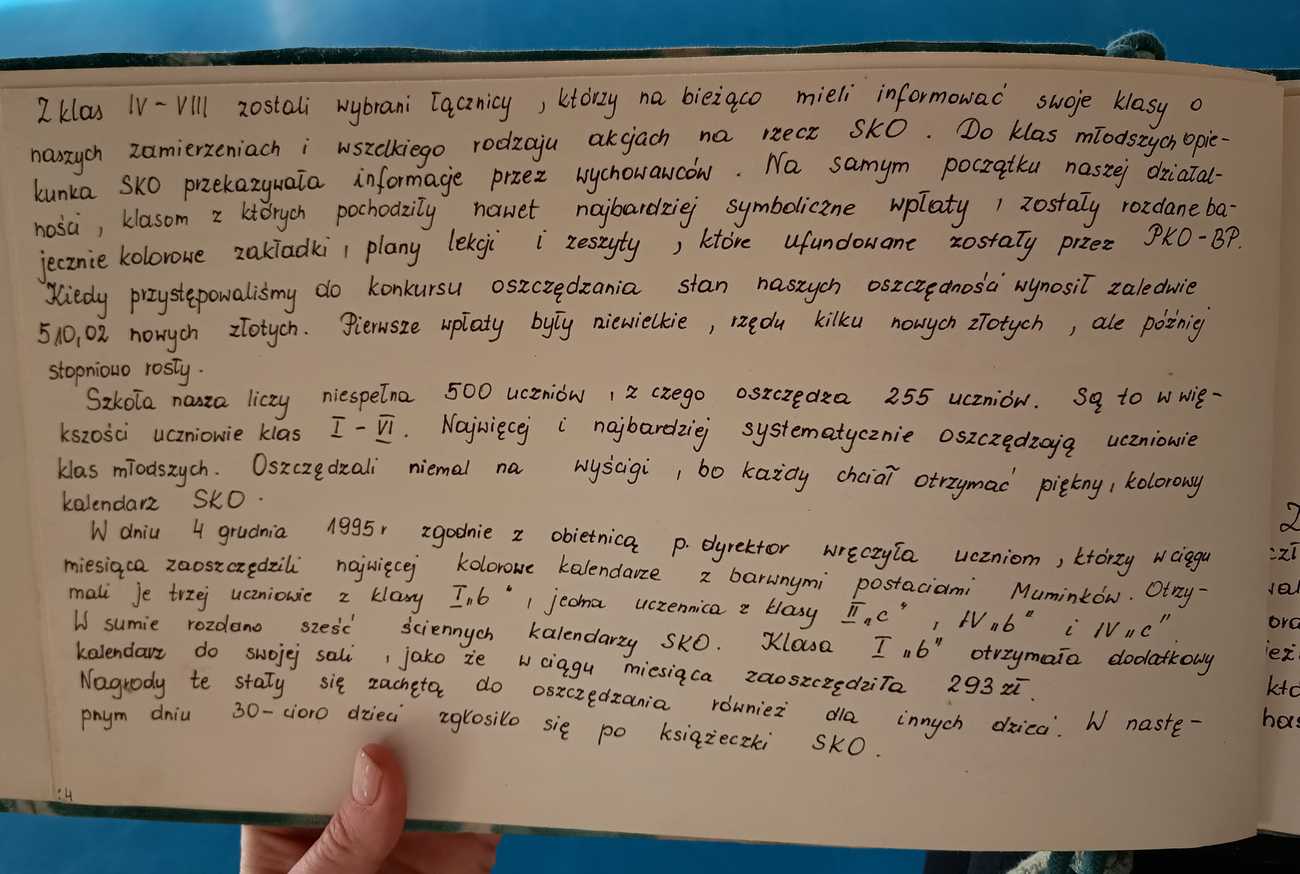 Z klas IV - VIII zostali wybrani łącznicy , którzy na bieżąco mieli informować swoje klasy o
naszych zamierzeniach i wszelkiego rodzaju akcjach na rzecz SKO . Do klas młodszych opie-
kunka SKO przekazywała informacje przez wychowawców . Na samym początku naszej działal-
ności , klasom z których pochodziły nawet najbardziej symboliczne wpłaty , zostały rozdane ba-
jecznie kolorowe zakładki , plany lekcji i zeszyty , które ufundowane zostały przez PKO - BP.
Kiedy przystępowaliśmy do konkursu oszczędzania stan naszych oszczędności wynosił zaledwie
510,02 nowych złotych . Pierwsze wpłaty były niewielkie , rzędu kilku nowych złotych , ale później
stopniowo rosły .
Szkoła nasza liczy niespełna 500 uczniów , z czego oszczędza 255 uczniów . Są to w wię-
kszości uczniowie klas I - VI . Najwięcej i najbardziej systematycznie oszczędzają uczniowie
klas młodszych . Oszczędzali niemal na wyścigi , bo każdy chciał otrzymać piękny , kolorowy
kalendarz SKO .
W dniu 4 grudnia 1995 r zgodnie z obietnicą p. dyrektor wręczyła uczniom , którzy w ciągu
miesiąca zaoszczędzili najwięcej kolorowe kalendarze z barwnymi postaciami Muminków . Otrzy-
mali je trzej uczniowie z klasy I „b" , jedna uczennica z klasy II „c" , IV „b" i IV „c" .
W sumie rozdano sześć ściennych kalendarzy SKO . Klasa I „b" otrzymała dodatkowy
kalendarz do swojej sali , jako że w ciągu miesiąca zaoszczędziła 293 zł .
Nagrody te stały się zachętą do oszczędzania również dla innych dzieci . W nastę-
pnym dniu 30 - cioro dzieci zgłosiło się po książeczki SKO .